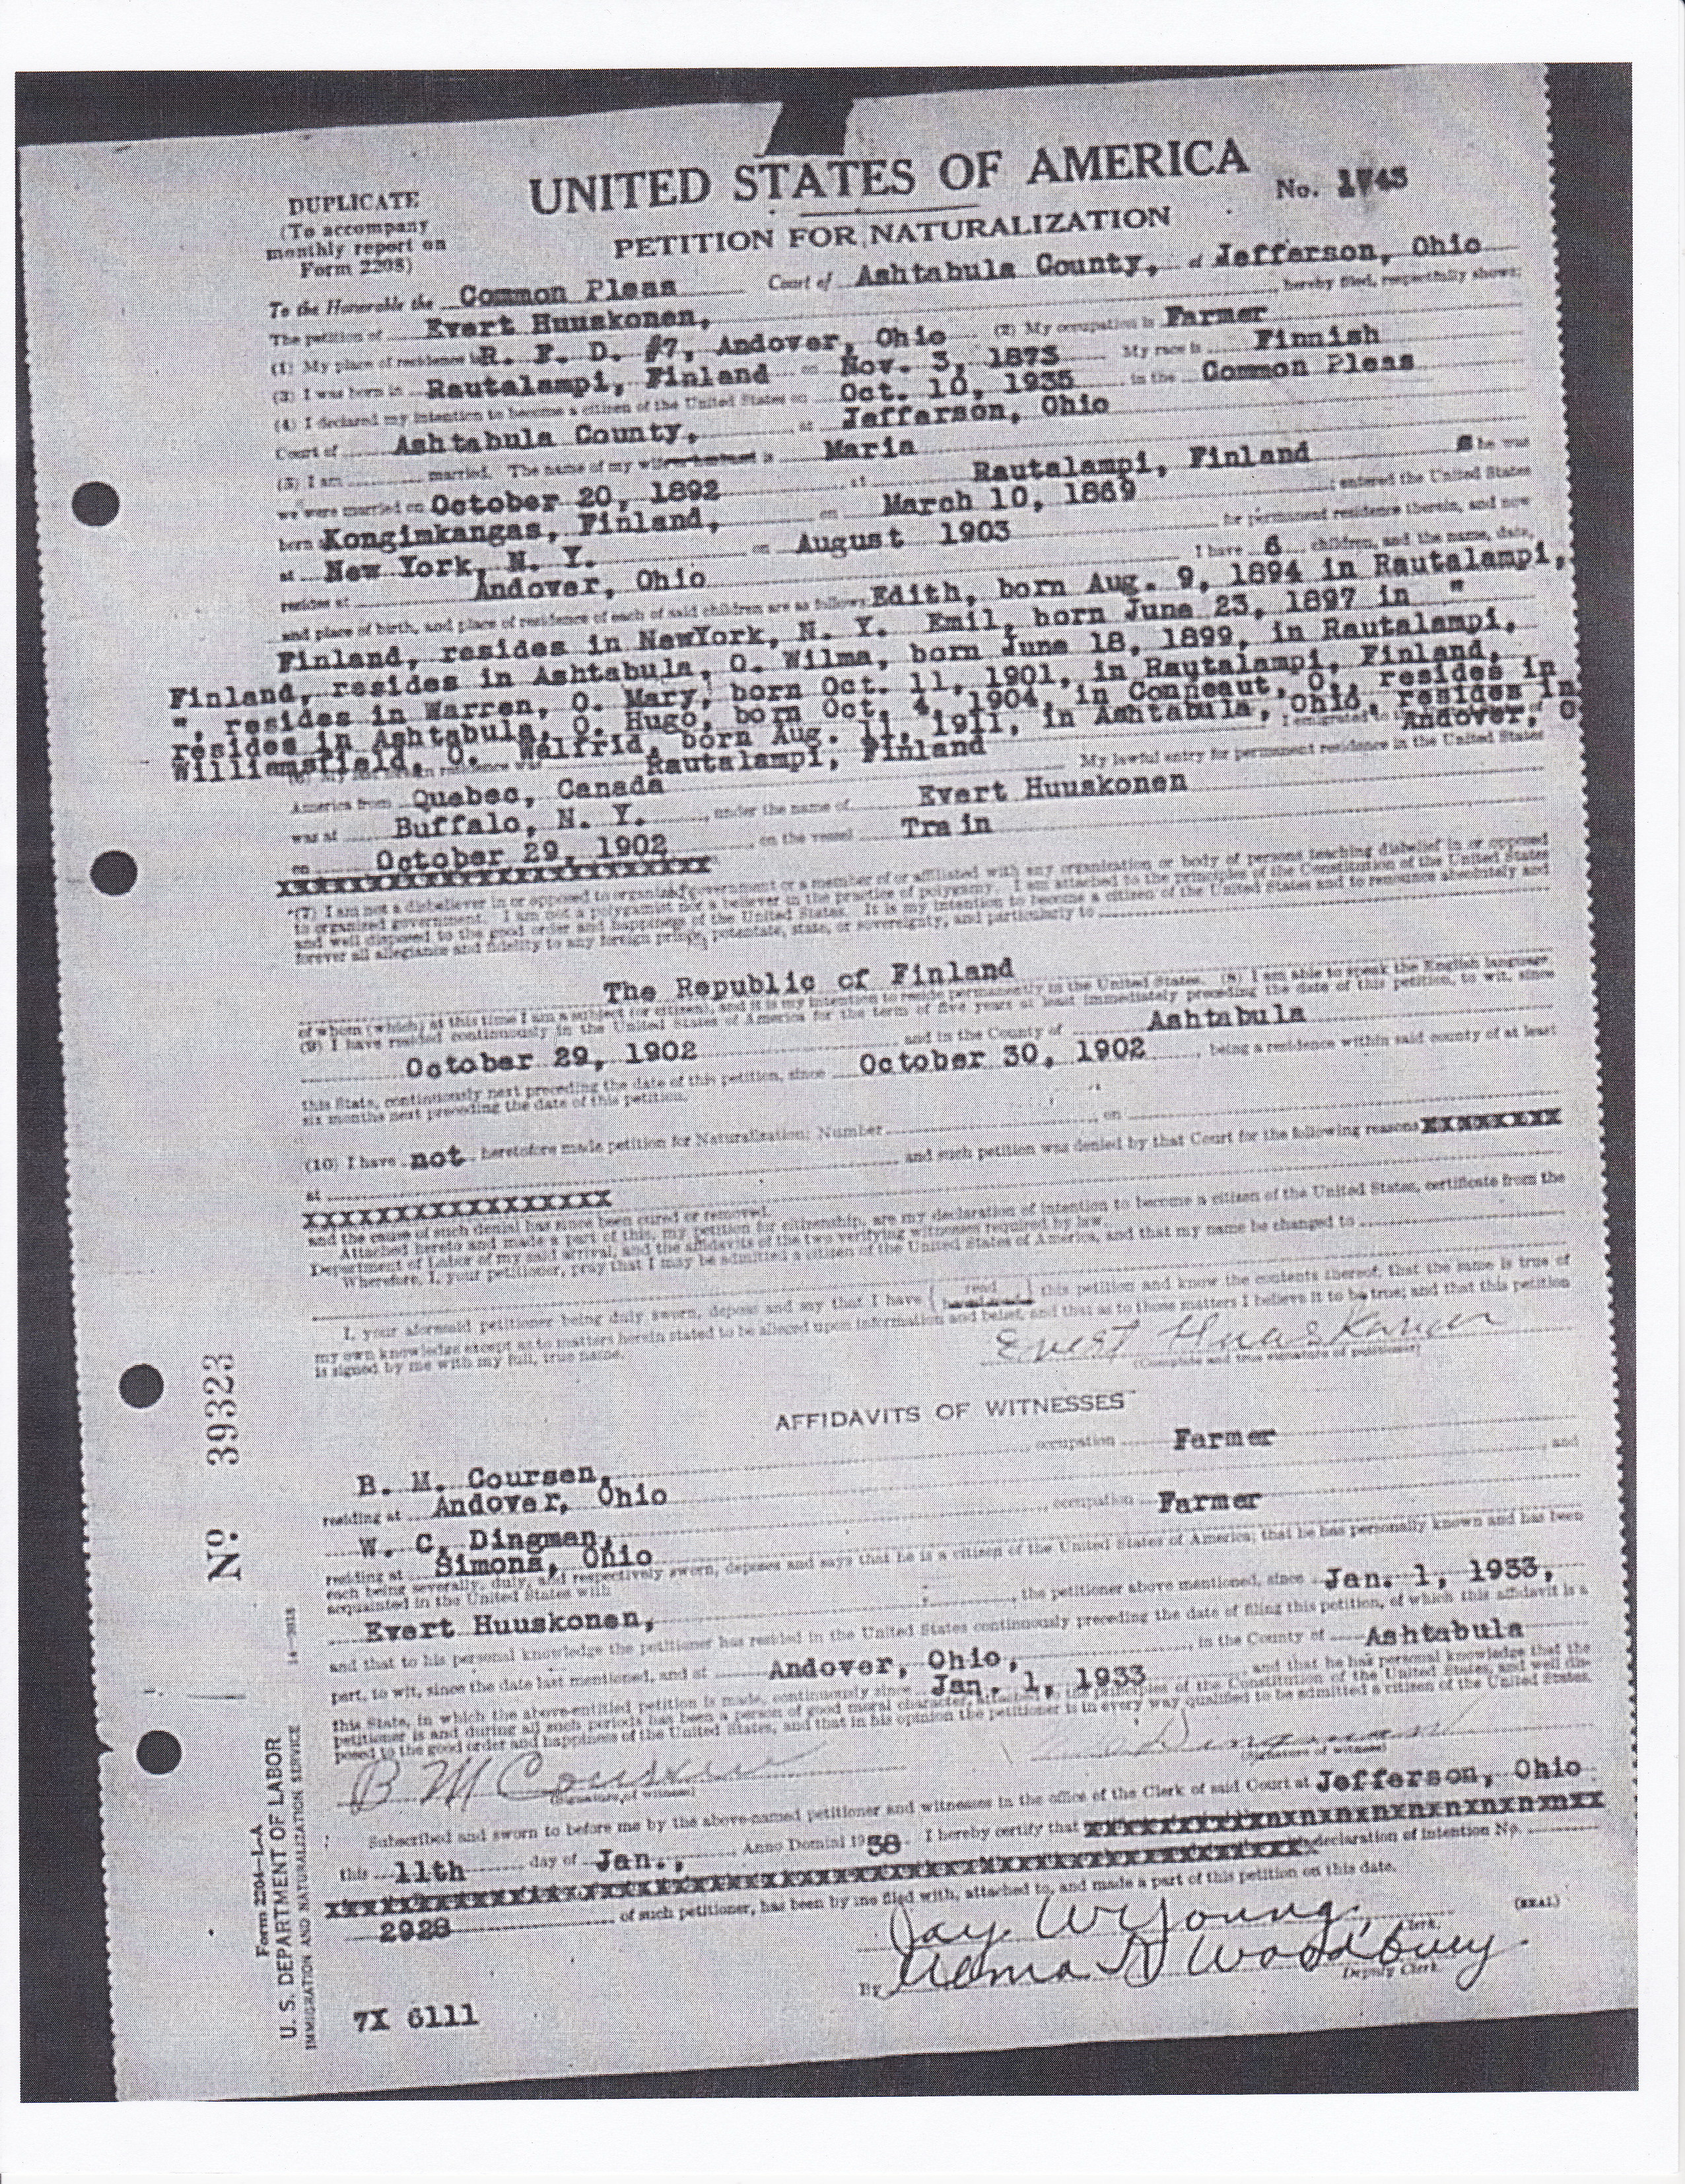 UNITED STATES OF AMERICA
DUPLICATE
(To accompany
monthly report on
Form 2208)
No. 1745
PETITION FOR NATURALIZATION
To the Honorable the Common Pleas Court of Ashtabula County, at Jefferson, Ohio
The petition of Evert Huuskonen, hereby filed, respectfully shows:
(1) My place of residence is R. F. D. #7, Andover, Ohio (2) My occupation is Farmer
(3) I was born in Rautalampi, Finland on Nov. 3, 1873 My race is Finnish
(4) I declared my intention to become a citizen of the United States on Oct. 10, 1935 in the Common Pleas
Court of Ashtabula County, at Jefferson, Ohio
(5) I am married. The name of my wife or husband is Maria
we were married on October 20, 1892 at Rautalampi, Finland S he was
born Kongimkangas, Finland, on March 10, 1869 ; entered the United States
at New York, N. Y. on August 1903 for permanent residence therein, and now
resides at Andover, Ohio I have 6 children, and the name, date,
and place of birth, and place of residence of each of said children are as follows: Edith, born Aug. 9, 1894 in Rautalampi,
Finland, resides in NewYork, N. Y. Emil, born June 23, 1897 in "
Finland, resides in Ashtabula, O. Wilma, born June 18, 1899, in Rautalampi,
", resides in Warren, O. Mary, born Oct. 11, 1901, in Rautalampi, Finland,
resides in Ashtabula, O. Hugo, born Oct. 4, 1904, in Conneaut, O., resides in
Williamsfield, O. Walfrid, born Aug. 11, 1911, in Ashtabula, Ohio, resides in
Andover, O
(6) My last foreign residence was Rautalampi, Finland I emigrated to the United States of
America from Quebec, Canada My lawful entry for permanent residence in the United States
was at Buffalo, N. Y. , under the name of Evert Huuskonen
on October 29, 1902 on the vessel Train
XXXXXXXXXXXXXXXXXXXXXXXX
(7) I am not a disbeliever in or opposed to organized government or a member of or affiliated with any organization or body of persons teaching disbelief in or opposed
to organized government. I am not a polygamist nor a believer in the practice of polygamy. I am attached to the principles of the Constitution of the United States
and well disposed to the good order and happiness of the United States. It is my intention to become a citizen of the United States and to renounce absolutely and
forever all allegiance and fidelity to any foreign prince, potentate, state, or sovereignty, and particularly to
The Republic of Finland
of whom (which) at this time I am a subject (or citizen), and it is my intention to reside permanently in the United States. (8) I am able to speak the English language.
(9) I have resided continuously in the United States of America for the term of five years at least immediately preceding the date of this petition, to wit, since
October 29, 1902 and in the County of Ashtabula
this State, continuously next preceding the date of this petition, since October 30, 1902 , being a residence within said county of at least
six months next preceding the date of this petition.
(10) I have not heretofore made petition for Naturalization: Number , on
at and such petition was denied by that Court for the following reasons XXXXXXXX
XXXXXXXXXXXXXXXXX
and the cause of such denial has since been cured or removed.
Attached hereto and made a part of this, my petition for citizenship, are my declaration of intention to become a citizen of the United States, certificate from the
Department of Labor of my said arrival, and the affidavits of the two verifying witnesses required by law.
Wherefore, I, your petitioner, pray that I may be admitted a citizen of the United States of America, and that my name be changed to
I, your aforesaid petitioner being duly sworn, depose and say that I have { read } this petition and know the contents thereof; that the same is true of
my own knowledge except as to matters herein stated to be alleged upon information and belief, and that as to those matters I believe it to be true; and that this petition
is signed by me with my full, true name.
Evert Huuskonen
(Complete and true signature of petitioner)
AFFIDAVITS OF WITNESSES
B. M. Coursen, occupation Farmer
residing at Andover, Ohio , and
W. C. Dingman, occupation Farmer
residing at Simons, Ohio
each being severally, duly, and respectively sworn, deposes and says that he is a citizen of the United States of America; that he has personally known and has been
acquainted in the United States with
Evert Huuskonen, , the petitioner above mentioned, since Jan. 1, 1933,
and that to his personal knowledge the petitioner has resided in the United States continuously preceding the date of filing this petition, of which this affidavit is a
part, to wit, since the date last mentioned, and at Andover, Ohio, , in the County of Ashtabula
this State, in which the above-entitled petition is made, continuously since Jan. 1, 1933 , and that he has personal knowledge that the
petitioner is and during all such periods has been a person of good moral character, attached to the principles of the Constitution of the United States, and well dis-
posed to the good order and happiness of the United States, and that in his opinion the petitioner is in every way qualified to be admitted a citizen of the United States.
B M Coursen
(Signature of witness)
Dingman
(Signature of witness)
Subscribed and sworn to before me by the above-named petitioner and witnesses in the office of the Clerk of said Court at Jefferson, Ohio
this 11th day of Jan., Anno Domini 1938. I hereby certify that
declaration of intention No.
2928 of such petitioner, has been by me filed with, attached to, and made a part of this petition on this date.
Jay W Young, Clerk.
(SEAL)
By Woodbury
Deputy Clerk.
7X 6111
No. 39323
14—2618
Form 2204—L-A
U. S. DEPARTMENT OF LABOR
IMMIGRATION AND NATURALIZATION SERVICE